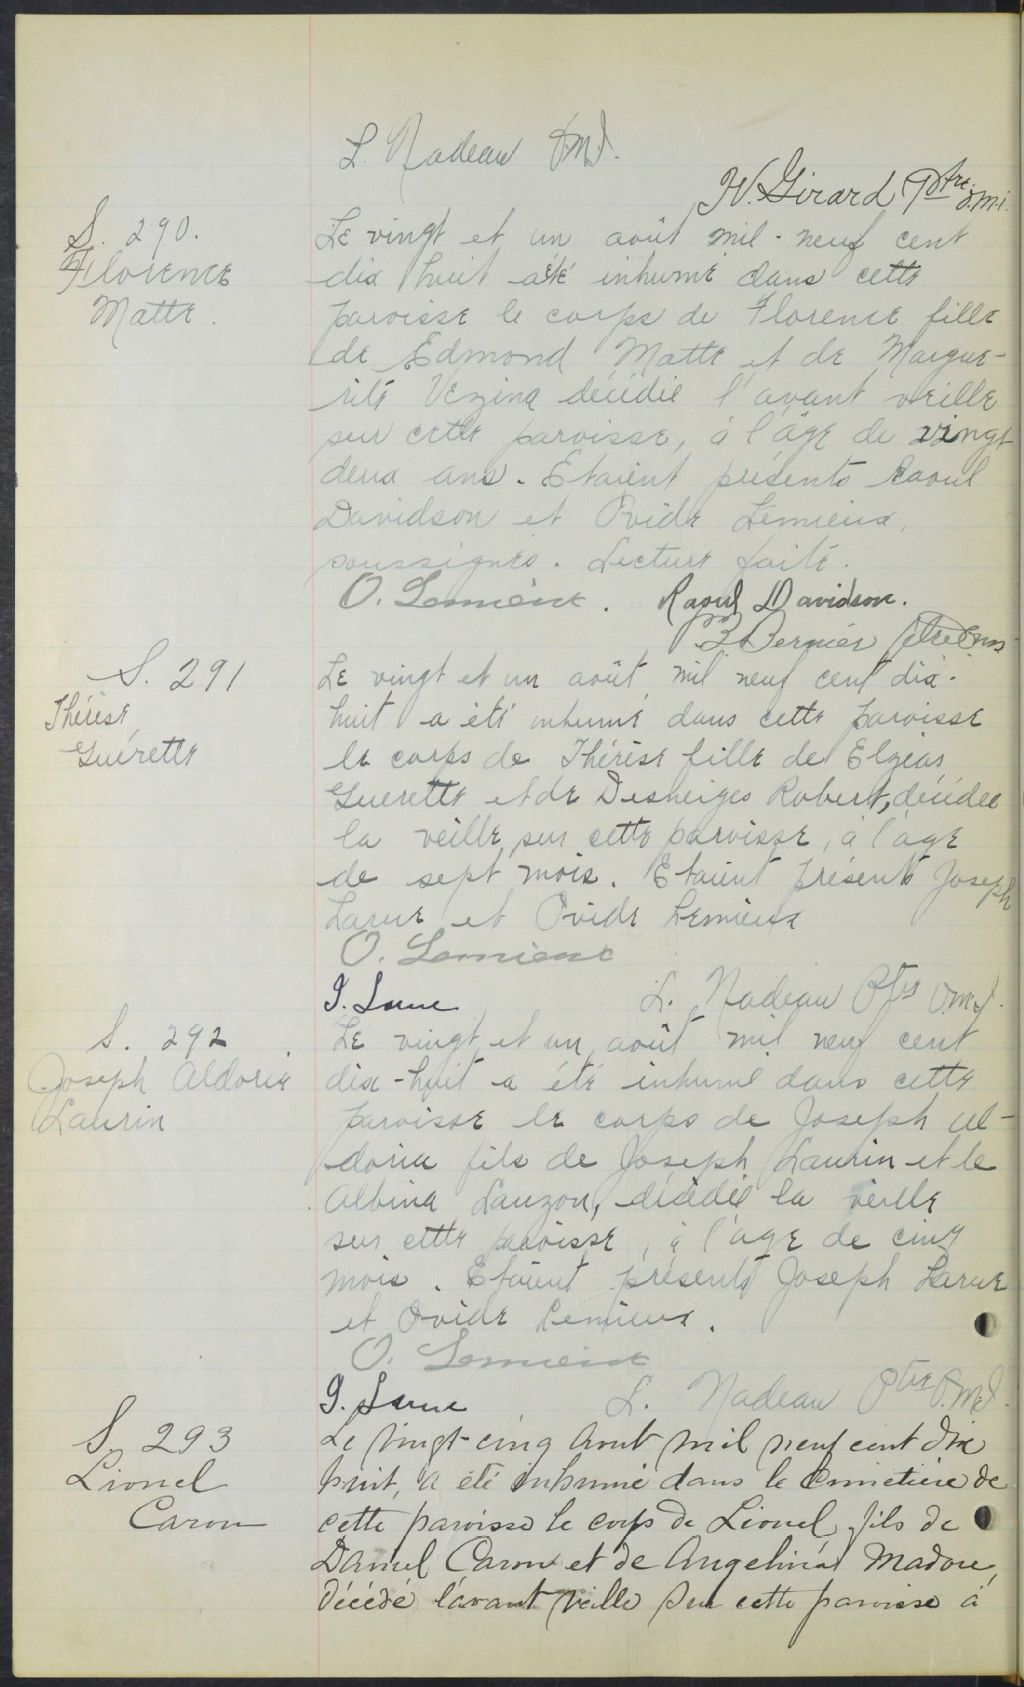 L. Nadeau O.M.I.
H. Girard Ptre o.m.i.
S. 290.
Florence
Matte.
Le vingt et un août mil-neuf cent
dix huit a été inhumé dans cette
paroisse le corps de Florence fille
de Edmond Matte et de Margue-
rite Vezina décédée l'avant veille
sur cette paroisse, à l'âge de vingt
deux ans. Etaient présents Raoul
Davidson et Ovide Lemieux,
soussignés. Lecture faite.
O. Lemieux. Raoul Davidson.
Bernier Ptre
S. 291
Thérèse
Guérette
Le vingt et un août mil neuf cent dix-
huit a été inhumé dans cette paroisse
le corps de Thérèse fille de Elzéas
Guerette et de Desneiges Robert, décédée
la veille sur cette paroisse, à l'age
de sept mois. Etaient présents Joseph
Larue et Ovide Lemieux
O. Lemieux
J. Larue L. Nadeau Ptre O.M.I.
S. 292
Joseph Aldoria
Laurin
Le vingt et un août mil neuf cent
dix-huit a été inhumé dans cette
paroisse le corps de Joseph Al-
doria fils de Joseph Laurin et de
Albina Lauzon, décédé la veille
sur cette paroisse, à l'age de cinq
mois. Etaient présents Joseph Larue
et Ovide Lemieux.
O. Lemieux
J. Larue L. Nadeau Ptre O.M.I.
S. 293
Lionel
Caron
Le vingt-cinq Aout mil neuf cent dix
huit, a été inhumé dans le Cimetière de
cette paroisse le corps de Lionel, fils de
Daniel Caron et de Angelina Madore,
décédé l'avant veille sur cette paroisse à